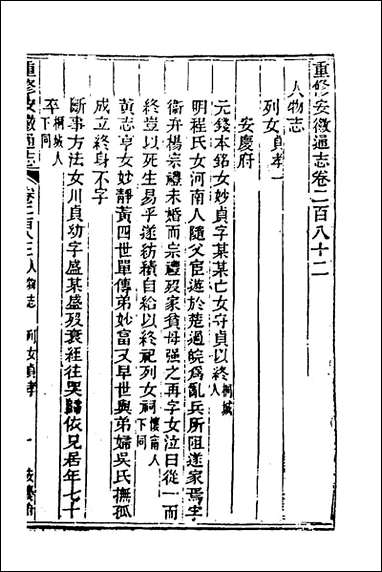 重修安徽通志卷二百八十二
人物志
列女貞孝一
安慶府
元錢本銘女妙貞字某某亡女守貞以終桐城人
明程氏女河南人隨父宦遊於楚過皖為亂兵所阻遂家焉字
衞弁楊宗禮未婚而宗禮歿家貧母强之再字女泣曰從一而
終豈以死生易乎遂紡績自給以終祀列女祠懷甯人下同
黃志亨女妙靜黃四世單傳弟妙富又早世與弟婦吳氏撫孤
成立終身不字
斷事方法女川貞幼字盛某盛歿衰絰往哭歸依兄居年七十
卒桐城人下同
重修安徽通志
卷二百八十二人物志
列女貞孝
一